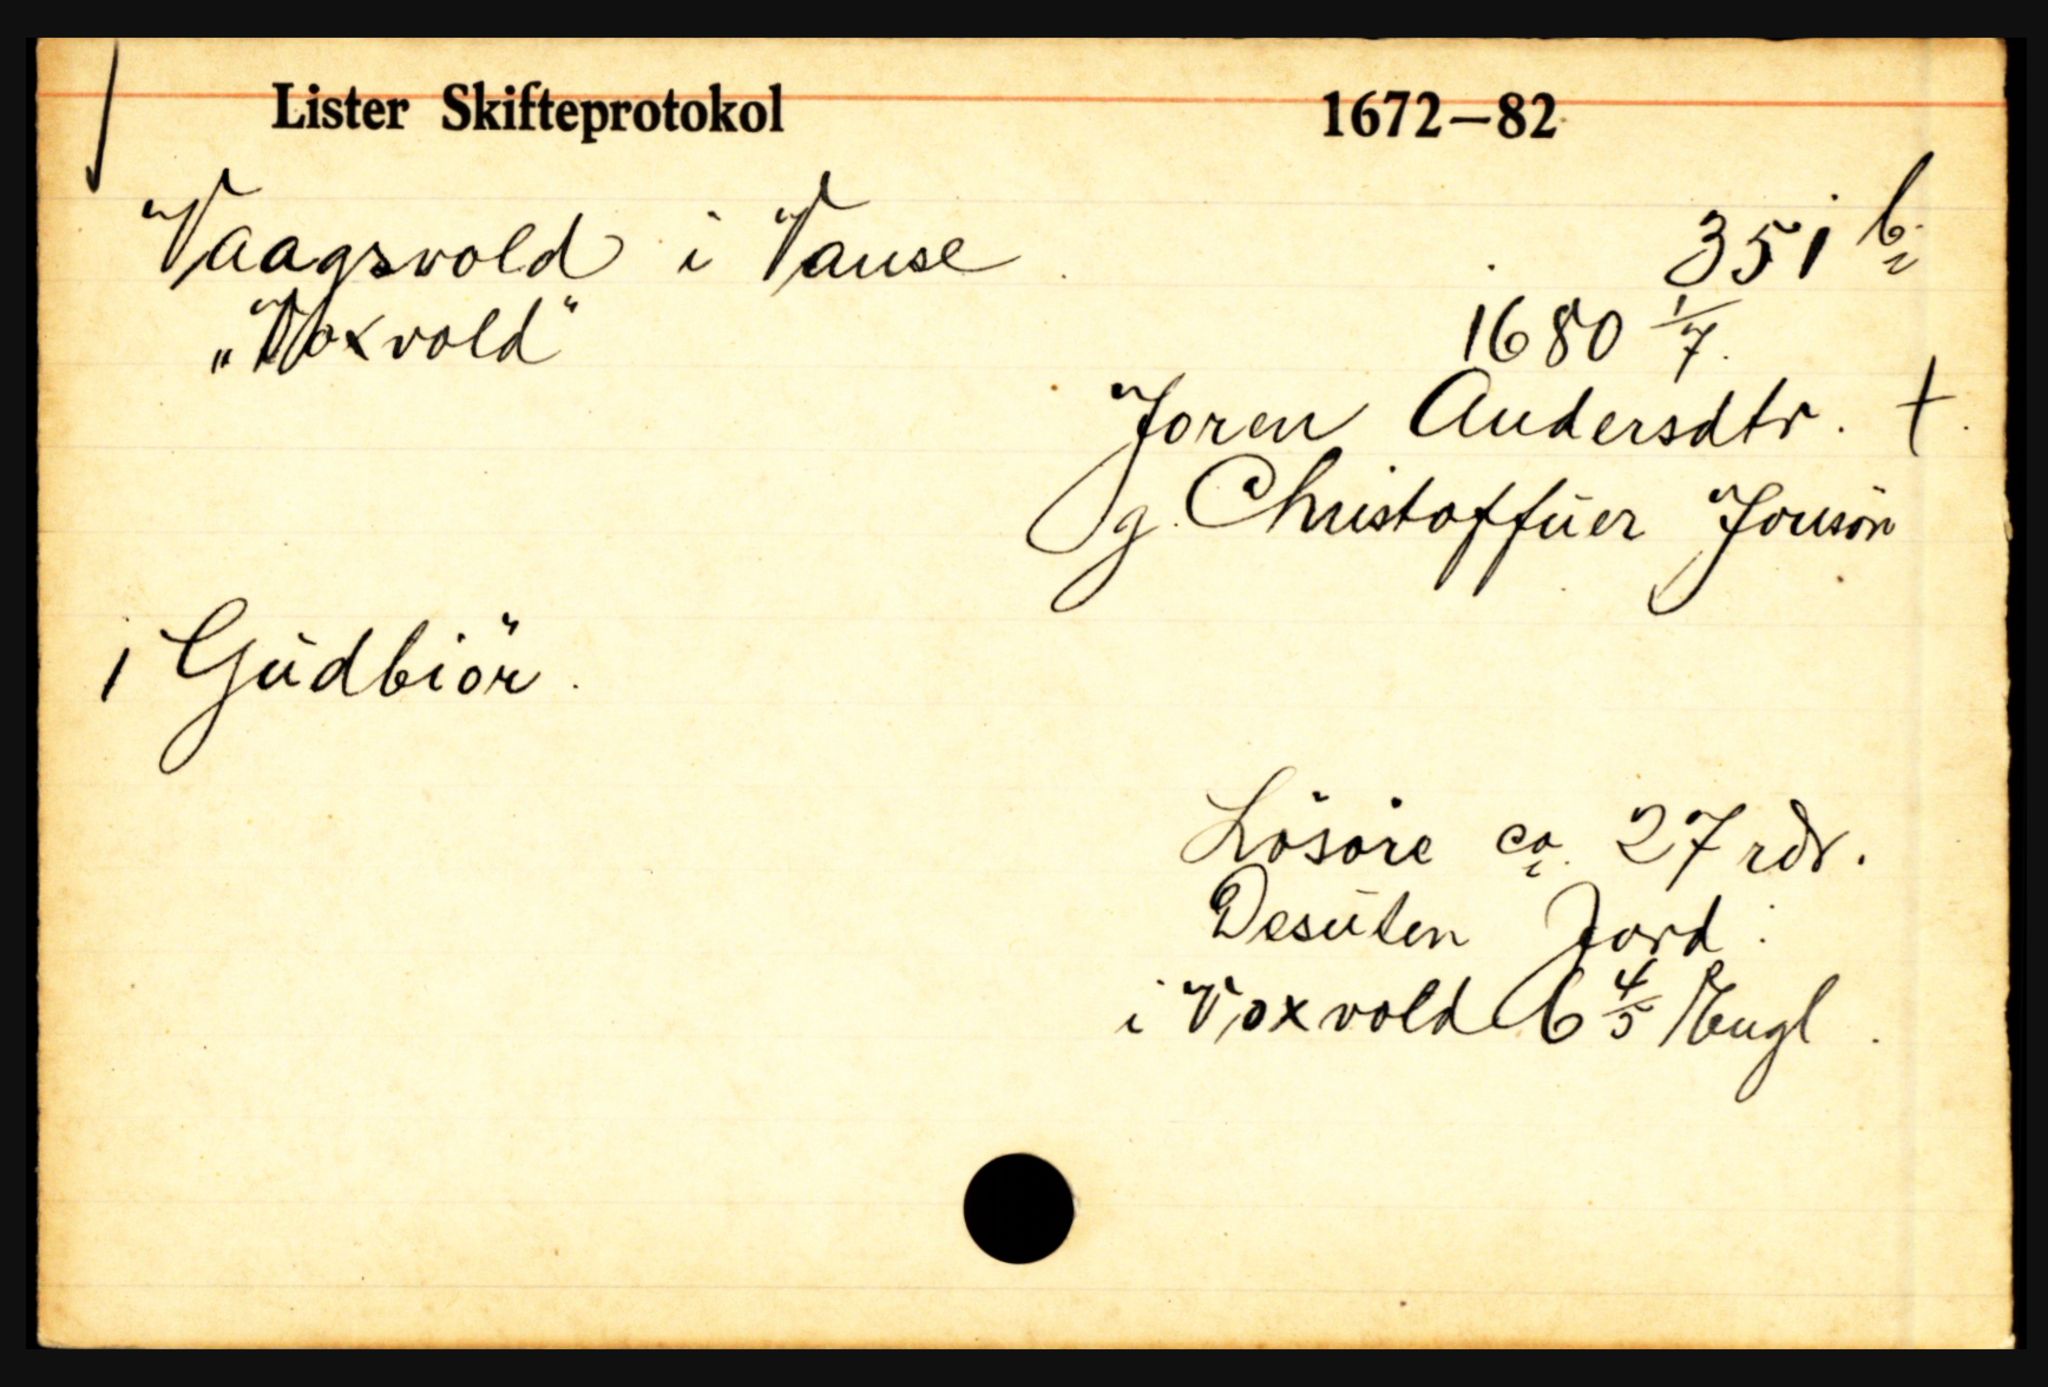 Lister Skifteprotokol 1672—82
Vaagsvold i Vanse 351 b
„Voxvold“ 1680 1/7.
Joren Andersdtr. †.
g. Christoffüer Jonsön
1 Güdbiör.
Lösöre ca. 27 rdr.
Desüten Jord:
i Voxvold 6 4/5 Engl.